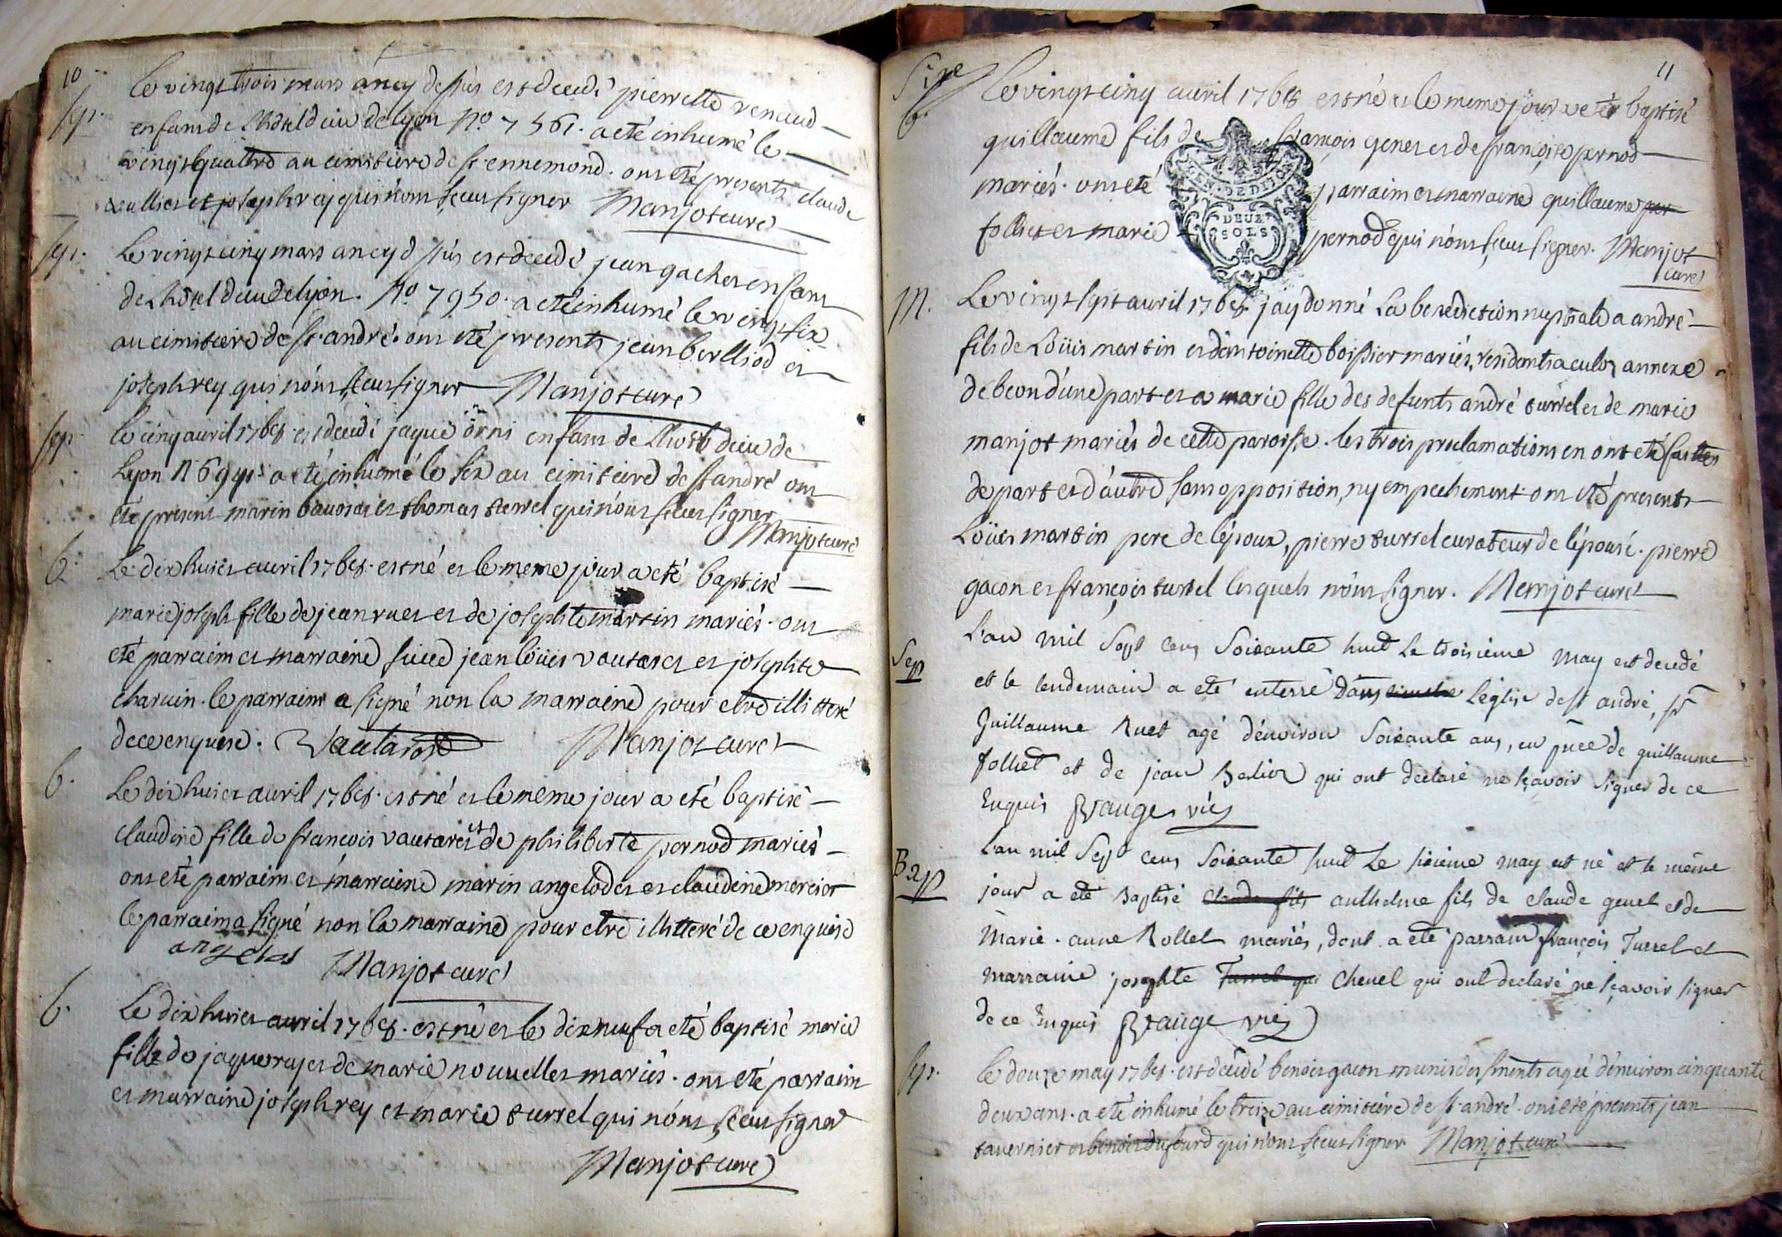 10
sep.
Le vingt trois mars an cy dessus est decedé pierrette renaud
enfans de l'hôtel dieu de lyon No 7561. a eté inhumé le
vingt quatre au cimitiere de st ennemond. ont eté presents claude
et joseph rey qui n'ont sceu signer Manjot curé
sep.
Le vingt cinq mars an cy dessus est decedé jean gacher enfans
de l'hôtel dieu de lyon. No 7950. a eté inhumé le vingt six
au cimitiere de st andré. ont eté presents jean berlliod et
joseph rey qui n'ont sceu signer Manjot curé
sep.
le cinq avril 1768 est decedé jaque orni enfans de l'hotel dieu de
Lyon a eté inhumé le six au cimitiere de st andré ont
eté presens marin et thomas turrel qui n'ont sceu signer
Manjot curé
b.
Le dix huict avril 1768. est né et le meme jour a eté baptisé
marie joseph fille de jean ruet et de josephte martin mariés. ont
eté parraim et marraine sieur jean loüis vautaret et josephte
charvin. le parraim a signé non la marraine pour etre illitteré
de ce enquise. Vautaret Manjot curé
b.
Le dix huict avril 1768. est né et le meme jour a eté baptisé
claudine fille de francois vautaret et de philiberte pernod mariés
ont eté parraim et marraine marin angelod et claudine mercier
le parraim a signé non la marraine pour etre illitteré de ce enquise
angelot Manjot curé
b.
Le dix huict avril 1768. est né et le dix neuf a eté baptisé marie
fille de jaque et de marie nouvelles mariés. ont eté parraim
et marraine joseph rey et marie turrel qui n'ont sceu signer
Manjot curé
11
b.
Le vingt cinq avril 1768 est né et le meme jour a eté baptisé
guillaume fils de françois genet et de françoise pernod
mariés. ont eté parraim et marraine guillaume
folliet et marie pernod qui n'ont sceu signer. Manjot
curé
GEN. DE DIJON
DEUX
SOLS
M.
Le vingt sept avril 1768. jay donné La benediction nuptiale a andré
fils de Loüis martin et d'antoinette boissier mariés, residents a culoz annexe
de beon d'une part et a marie fille des defunts andré turrel et de marie
manjot mariés de cette paroisse. les trois proclamations en ont eté faittes
de part et d'autre sans opposition, ny empechement ont eté presents
Loüis martin pere de l'époux, pierre turrel curateur de l'épouse. pierre
gacon et françois turrel lesquels n'ont signer. Manjot curé
Sep
L'an mil Sept cens Soixante huit Le troisième may est decedé
et le lendemain a eté enterré dans L'église de st andré, sr
Guillaume Ruet agé d'environ Soixante ans, en pnce de guillaume
folliet et de jean Berlioz qui ont declaré ne sçavoir signer de ce
Enquis Brauge vic
Bap
L'an mil Sept cens Soixante huit Le sixieme may est né et le même
jour a eté Baptisé Claude fils anthelme fils de claude genet et de
Marie-anne Rollet mariés, dont a eté parrain françois Turrel et
marraine josephte Turrel qui Chenel qui ont declaré ne sçavoir signer
de ce Enquis Brauge vic
sep.
Le douze may 1768. est decedé benoit gacon munis des sments agé d'environ cinquante
deux ans. a eté inhumé le treize au cimitiere de st andré. ont eté presents jean
tavernier et benoit dufourd qui n'ont sceu signer Manjot curé